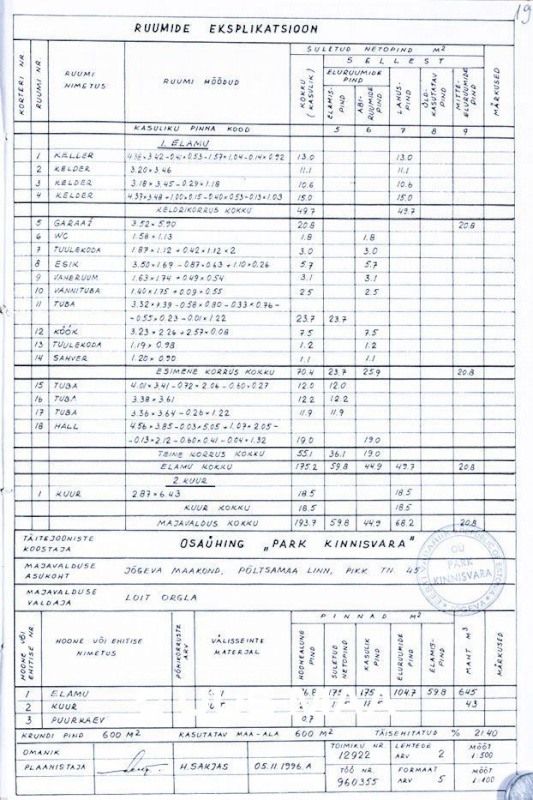 19
RUUMIDE EKSPLIKATSIOON
KORTERI NR. RUUMI NR. RUUMI NIMETUS RUUMI MÕÕDUD SULETUD NETOPIND M²
SELLEST
KOKKU (KASULIK) ELURUUMIDE PIND LAHUS- PIND ÜLD- KASUTATAV PIND MITTE- ELURUUMIDE PIND MÄRKUSED
ELAMIS- PIND ABI- RUUMIDE PIND
KASULIKU PINNA KOOD 5 6 7 8 9
1. ELAMU
1 KELDER 13.0 13.0
2 KELDER 3.20 × 3.46 11.1 11.1
3 KELDER 3.18 × 3.45 - 0.29 × 1.18 10.6 10.6
4 KELDER 4.37 × 3.48 + 1.00 × 0.15 - 0.40 × 0.53 - 0.13 × 1.03 15.0 15.0
KELDRIKORRUS KOKKU 49.7 49.7
5 GARAAŽ 3.52 × 5.90 20.8 20.8
6 WC 1.58 × 1.13 1.8 1.8
7 TUULEKODA 1.87 × 1.12 + 0.42 × 1.12 × 2 3.0 3.0
8 ESIK 3.50 × 1.69 - 0.87 × 0.63 + 1.10 × 0.26 5.7 5.7
9 VAHERUUM 1.63 × 1.74 + 0.49 × 0.54 3.1 3.1
10 VANNITUBA 1.40 × 1.75 + 0.09 × 0.55 2.5 2.5
11 TUBA 3.32 × 7.39 - 0.58 × 0.80 - 0.33 × 0.76 -
- 0.55 × 0.23 - 0.01 × 1.22 23.7 23.7
12 KÖÖK 3.23 × 2.26 + 2.57 × 0.08 7.5 7.5
13 TUULEKODA 1.19 × 0.98 1.2 1.2
14 SAHVER 1.20 × 0.90 1.1 1.1
ESIMENE KORRUS KOKKU 70.4 23.7 25.9 20.8
15 TUBA 4.01 × 3.41 - 0.72 × 2.06 - 0.60 × 0.27 12.0 12.0
16 TUBA 3.38 × 3.61 12.2 12.2
17 TUBA 3.36 × 3.64 - 0.26 × 1.22 11.9 11.9
18 HALL 4.56 × 3.85 - 0.03 × 5.05 + 1.07 × 2.05 -
- 0.13 × 2.12 - 0.60 × 0.41 - 0.04 × 1.32 19.0 19.0
TEINE KORRUS KOKKU 55.1 36.1 19.0
ELAMU KOKKU 175.2 59.8 44.9 49.7 20.8
2. KUUR
1 KUUR 2.87 × 6.43 18.5 18.5
KUUR KOKKU 18.5 18.5
MAJAVALDUS KOKKU 193.7 59.8 44.9 68.2 20.8
TÄITEJOONISTE KOOSTAJA OSAÜHING „PARK KINNISVARA"
OÜ PARK KINNISVARA
MAJAVALDUSE ASUKOHT JÕGEVA MAAKOND, PÕLTSAMAA LINN, PIKK TN 45
MAJAVALDUSE VALDAJA LOIT ORGLA
HOONE VÕI EHITISE NR. HOONE VÕI EHITISE NIMETUS PÕHIKORRUSTE ARV VÄLISSEINTE MATERJAL PINNAD M² MAHT M³ MÄRKUSED
HOONEALUNG PIND SULETUD NETOPIND KASULIK PIND ELURUUMIDE PIND ELAMIS- PIND
1 ELAMU 104.7 59.8 645
2 KUUR 43
3 PUURKAEV 0.7
KRUNDI PIND 600 M² KASUTATAV MAA-ALA 600 M² TÄISEHITATUD % 21.40
OMANIK TOIMIKU NR 12922 LEHTEDE ARV 2 MÕÕT 1:500
PLAANISTAJA H. SAKJAS 05.11.1996.A TÖÖ NR 960355 FORMAAT ARV 5 MÕÕT 1:100